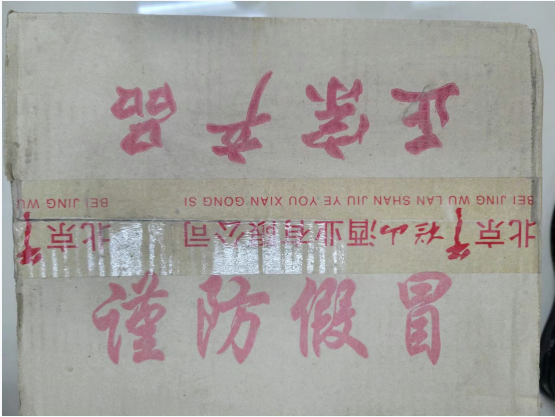 正宗产品
BEI JING WU LAN SHAN JIU YE YOU XIAN GONG SI BEI JING WU
北京栏山酒业有限公司 北京
谨防假冒